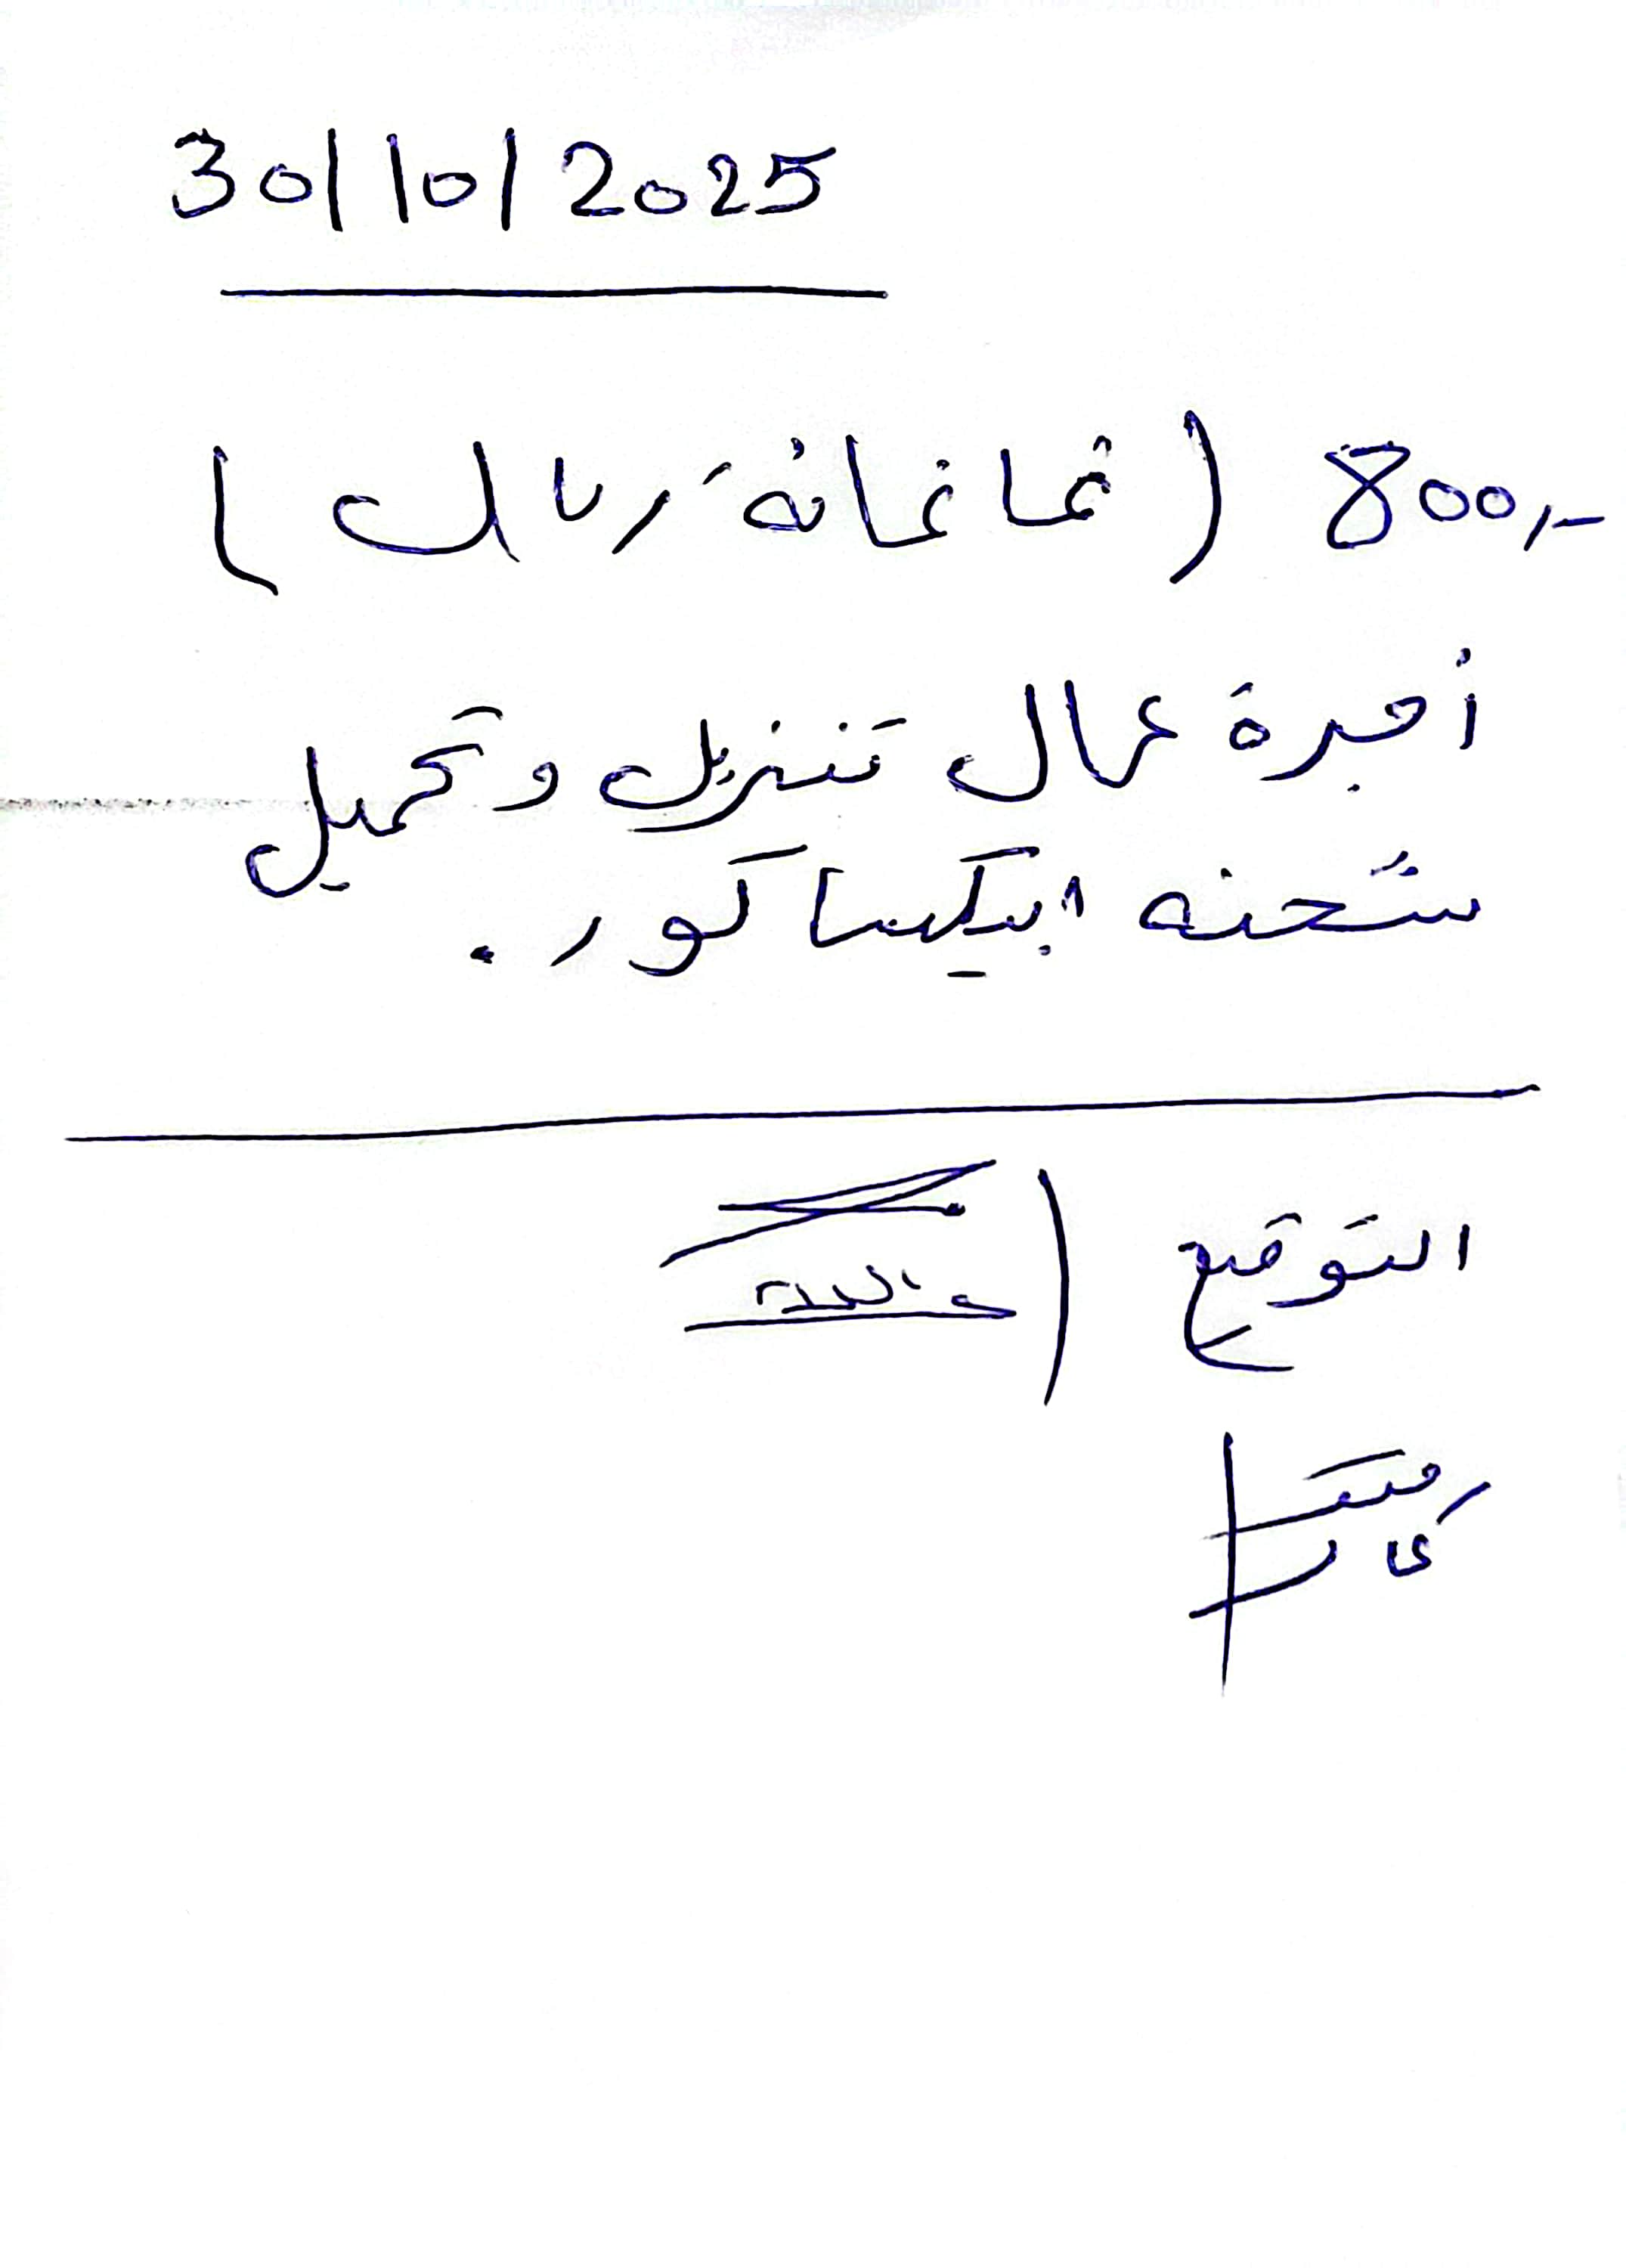 30/10/2025
800,- (ثمانمائة ريال)
أجرة عمال تنزيل وتحميل
شحنه ابيكساكور.
التوقيع